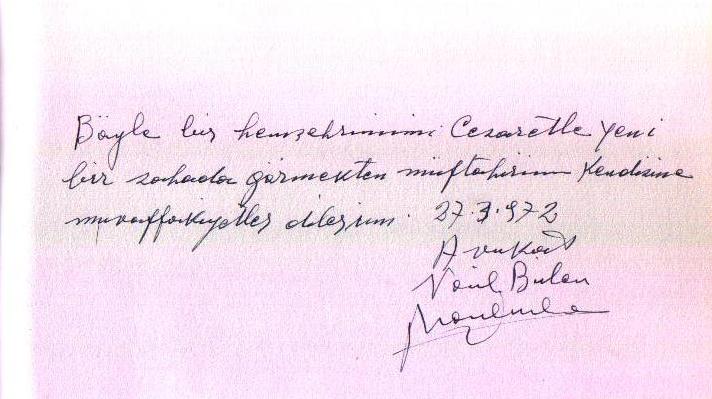 Böyle bir hemşehrimimi Cesaretle yeni
bir sahada görmekten müftahirim Kendisine
muvaffakiyetler dilerim. 27.3.972
Avukat
Bulan